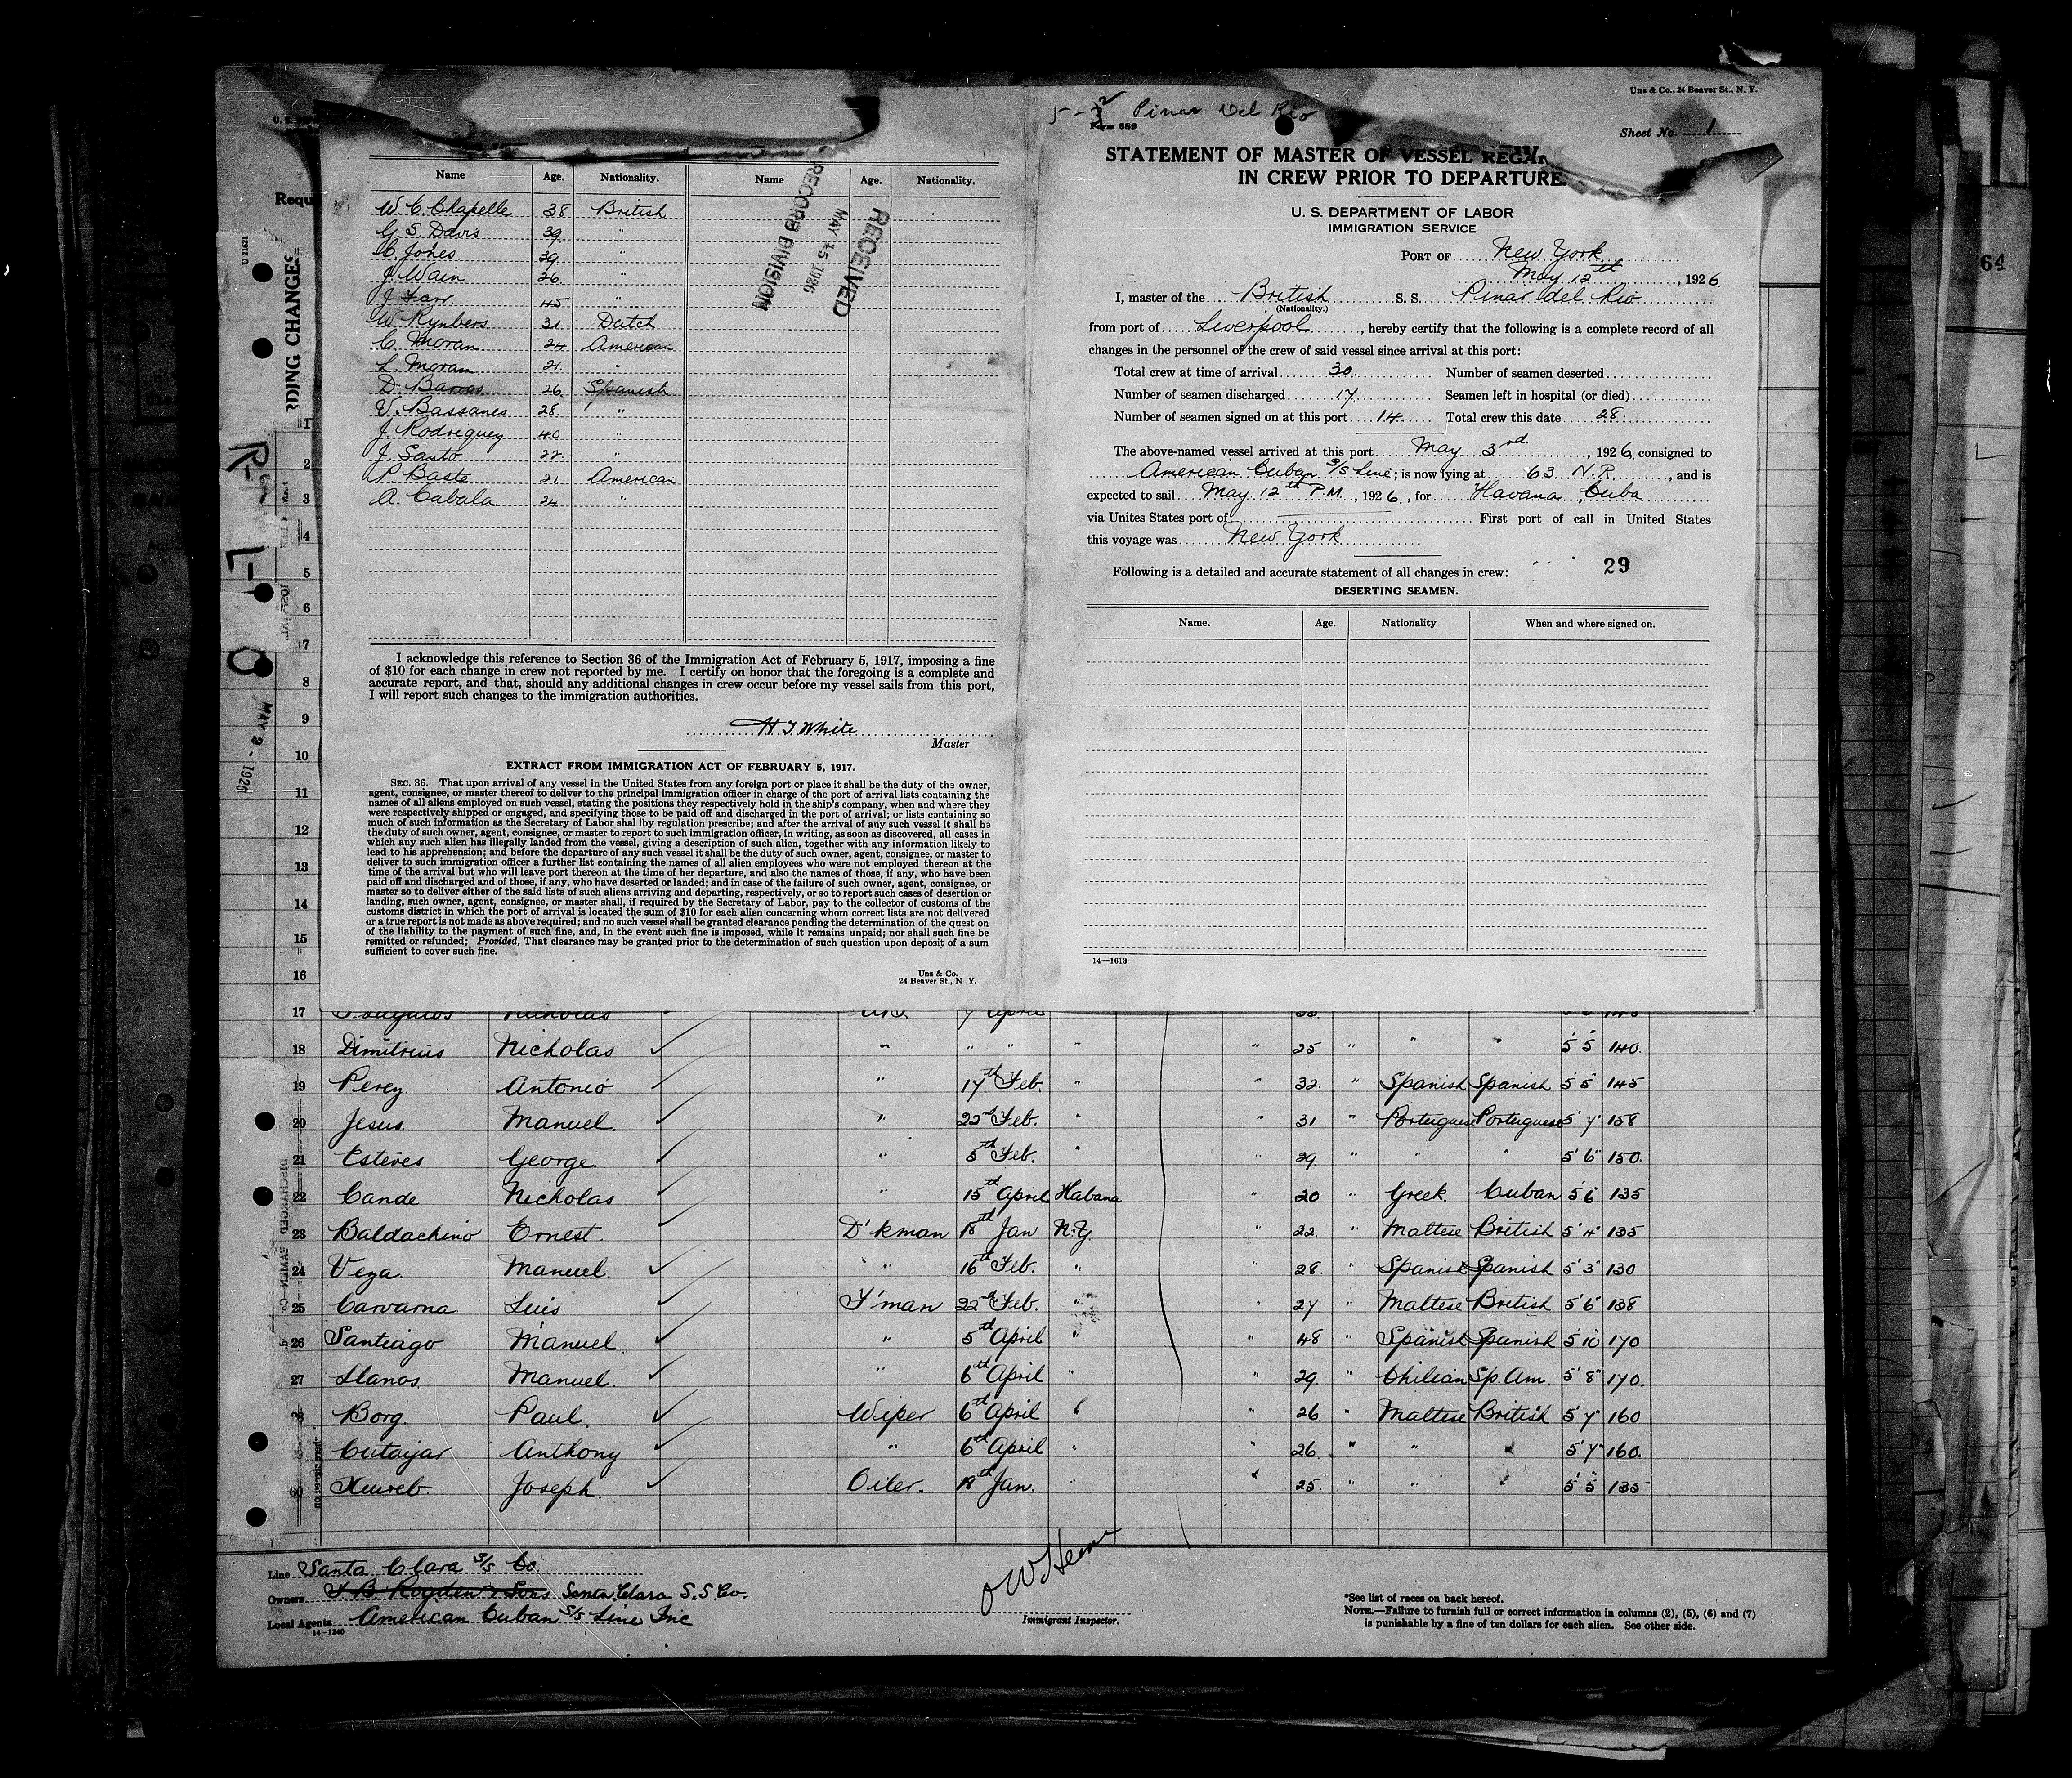 Uns & Co., 24 Beaver St., N. Y.
Pinar Del Rio
Form 689
Sheet No. 1
Name Age. Nationality. Name Age. Nationality.
W. C. Chapelle 38 British
G. S. Davis 39 "
C. Jones 39. "
J. Wain 26. "
J. 45 "
W. Rynbers 31. Dutch
C. Moran 24 American
L. Moran 21. "
D. Barros 26. Spanish
V. Bassanes 28. "
J. Rodriguey 40 "
J. Santo 22. "
P. Baste 21. American
A. Cabala 24 "
RECEIVED
MAY 15 1926
RECORD DIVISION
I acknowledge this reference to Section 36 of the Immigration Act of February 5, 1917, imposing a fine
of $10 for each change in crew not reported by me. I certify on honor that the foregoing is a complete and
accurate report, and that, should any additional changes in crew occur before my vessel sails from this port,
I will report such changes to the immigration authorities.
H J White
Master
EXTRACT FROM IMMIGRATION ACT OF FEBRUARY 5, 1917.
SEC. 36. That upon arrival of any vessel in the United States from any foreign port or place it shall be the duty of the owner,
agent, consignee, or master thereof to deliver to the principal immigration officer in charge of the port of arrival lists containing the
names of all aliens employed on such vessel, stating the positions they respectively hold in the ship's company, when and where they
were respectively shipped or engaged, and specifying those to be paid off and discharged in the port of arrival; or lists containing so
much of such information as the Secretary of Labor shal lby regulation prescribe; and after the arrival of any such vessel it shall be
the duty of such owner, agent, consignee, or master to report to such immigration officer, in writing, as soon as discovered, all cases in
which any such alien has illegally landed from the vessel, giving a description of such alien, together with any information likely to
lead to his apprehension; and before the departure of any such vessel it shall be the duty of such owner, agent, consignee, or master to
deliver to such immigration officer a further list containing the names of all alien employees who were not employed thereon at the
time of the arrival but who will leave port thereon at the time of her departure, and also the names of those, if any, who have been
paid off and discharged and of those, if any, who have deserted or landed; and in case of the failure of such owner, agent, consignee, or
master so to deliver either of the said lists of such aliens arriving and departing, respectively, or so to report such cases of desertion or
landing, such owner, agent, consignee, or master shall, if required by the Secretary of Labor, pay to the collector of customs of the
customs district in which the port of arrival is located the sum of $10 for each alien concerning whom correct lists are not delivered
or a true report is not made as above required; and no such vessel shall be granted clearance pending the determination of the quest on
of the liability to the payment of such fine, and, in the event such fine is imposed, while it remains unpaid; nor shall such fine be
remitted or refunded; Provided, That clearance may be granted prior to the determination of such question upon deposit of a sum
sufficient to cover such fine.
Uns & Co.
24 Beaver St., N Y.
STATEMENT OF MASTER OF VESSEL REGAR
IN CREW PRIOR TO DEPARTURE.
U. S. DEPARTMENT OF LABOR
IMMIGRATION SERVICE
PORT OF New York
May 12th, 1926
I, master of the British S. S. Pinar del Rio
(Nationality.)
from port of Liverpool, hereby certify that the following is a complete record of all
changes in the personnel of the crew of said vessel since arrival at this port:
Total crew at time of arrival 30. Number of seamen deserted
Number of seamen discharged 17. Seamen left in hospital (or died)
Number of seamen signed on at this port 14. Total crew this date 28.
The above-named vessel arrived at this port May 3rd, 1926, consigned to
American Cuban S/S Line; is now lying at 63 N. R., and is
expected to sail May 12th P.M., 1926, for Havana, Cuba
via Unites States port of First port of call in United States
this voyage was New York
Following is a detailed and accurate statement of all changes in crew: 29
DESERTING SEAMEN.
Name. Age. Nationality When and where signed on.
14—1613
Requ
RDING CHANGES
U 21621
MAY 2 - 1926
64
1
2
3
4
5
6
7
8
9
10
11
12
13
14
15
16
17 Nicholas A.B. 7 April
18 Dimitrius Nicholas " " " " " 25 " " " 5 5 140.
19 Perey Antonio " 17th Feb. " " 32. " Spanish Spanish 5 5 145
20 Jesus Manuel. " 22nd Feb. " " 31 " Portuguese Portuguese 5' 7" 158
21 Esteves George " 5th Feb. " " 29. " " " 5' 6" 150.
22 Cande Nicholas " 15th April Habana " 20 " Greek Cuban 5 6 135
23 Baldachino Ernest. D'kman 18th Jan N.Y. " 22. " Maltese British 5' 4" 135
24 Vega. Manuel. " 16th Feb. " " 28. " Spanish Spanish 5' 3" 130
25 Carvarna Luis F'man 22nd Feb. " " 27 " Maltese British 5' 6" 138
26 Santiago Manuel " 5th April " " 48 " Spanish Spanish 5 10 170
27 Llanos. Manuel. " 6th April " " 29. " Chilian Sp. Am. 5' 8" 170.
28 Borg. Paul. Wiper 6th April " " 26. " Maltese British 5' 7" 160
Cutaijar Anthony " 6th April " " 26. " " " 5' 7" 160.
30 Xuereb. Joseph. Oiler. 18th Jan. " " 25. " " " 5 5 135
Line Santa Clara S/S Co.
Owners J B Rogden & Sons Santa Clara S. S. Co.
Local Agents American Cuban S/S Line Inc
14-1240
Immigrant Inspector.
*See list of races on back hereof.
NOTE.—Failure to furnish full or correct information in columns (2), (5), (6) and (7)
is punishable by a fine of ten dollars for each alien. See other side.